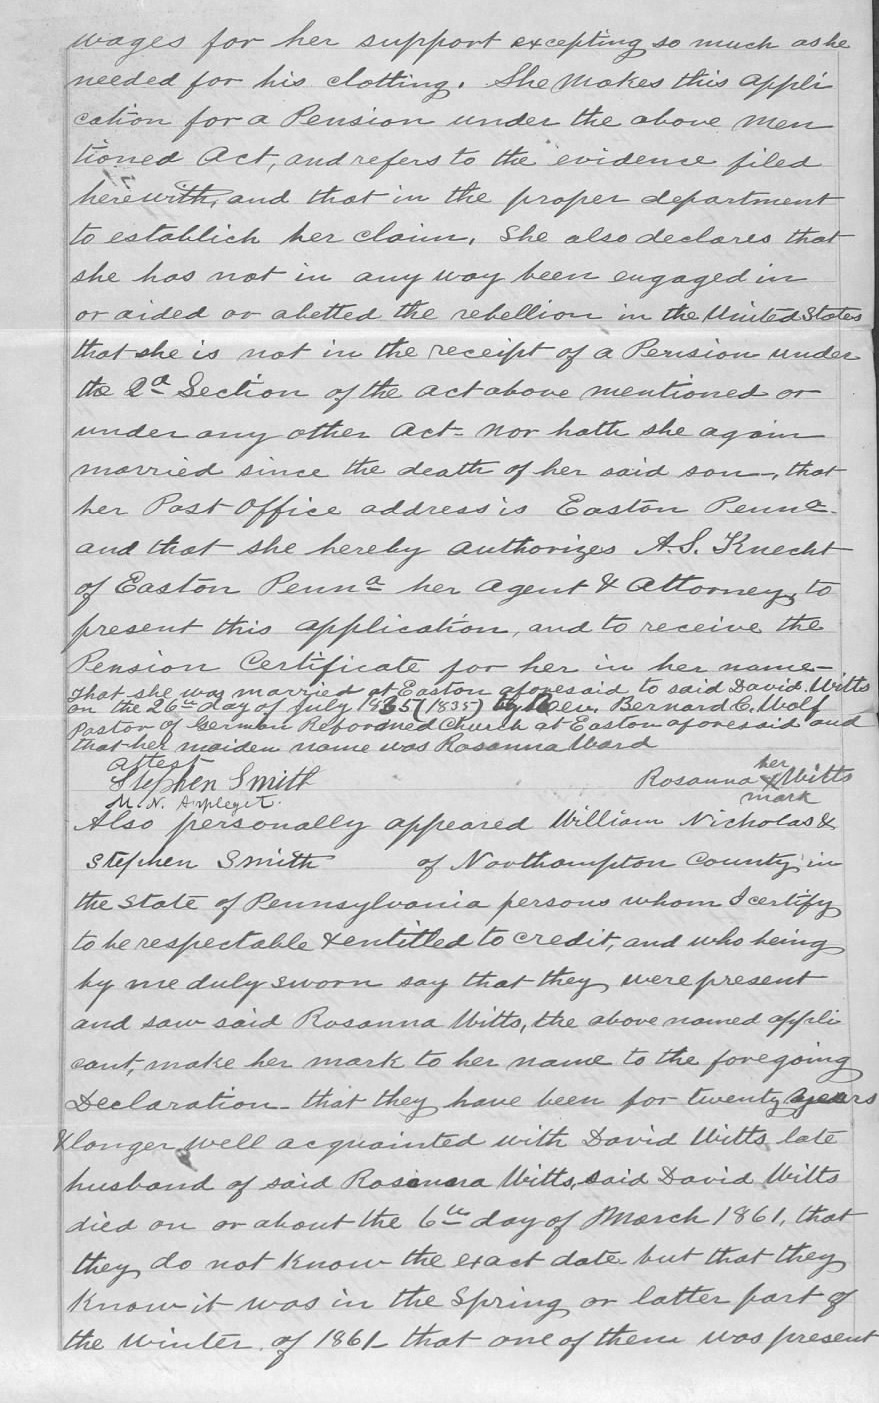 wages for her support excepting so much as he
needed for his clotting. She makes this appli
cation for a Pension under the above men
tioned Act, and refers to the evidence filed
herewith, and that in the proper department
to establich her claim. She also declares that
she has not in any way been engaged in
or aided or abetted the rebellion in the United States
that she is not in the receipt of a Pension under
the 2d Section of the act above mentioned or
under any other Act - nor hath she again
married since the death of her said son -, that
her Post Office address is Easton Penna.
and that she hereby authorizes A.S. Knecht
of Easton Penna her Agent & Attorney, to
present this application, and to receive the
Pension Certificate for her in her name -
that she was married at Easton aforesaid to said David Witts
on the 26th day of July 1835 (1835) by Rev. Bernard C. Wolf
Pastor of German Reformed Church at Easton aforesaid and
that her maiden name was Rosanna Ward
Attest
Stephen Smith
M. N. Applegit.
her
Rosanna X Witts
mark
Also personally appeared William Nicholas &
Stephen Smith of Northampton County in
the State of Pennsylvania persons whom I certify
to be respectable & entitled to credit, and who being
by me duly sworn say that they were present
and saw said Rosanna Witts, the above named appli
cant, make her mark to her name to the foregoing
Declaration - that they have been for twenty years
& longer well acquainted with David Witts late
husband of said Rosanna Witts, said David Witts
died on or about the 6th day of March 1861, that
they do not know the exact date but that they
know it was in the Spring or latter part of
the Winter of 1861 - that one of them was present